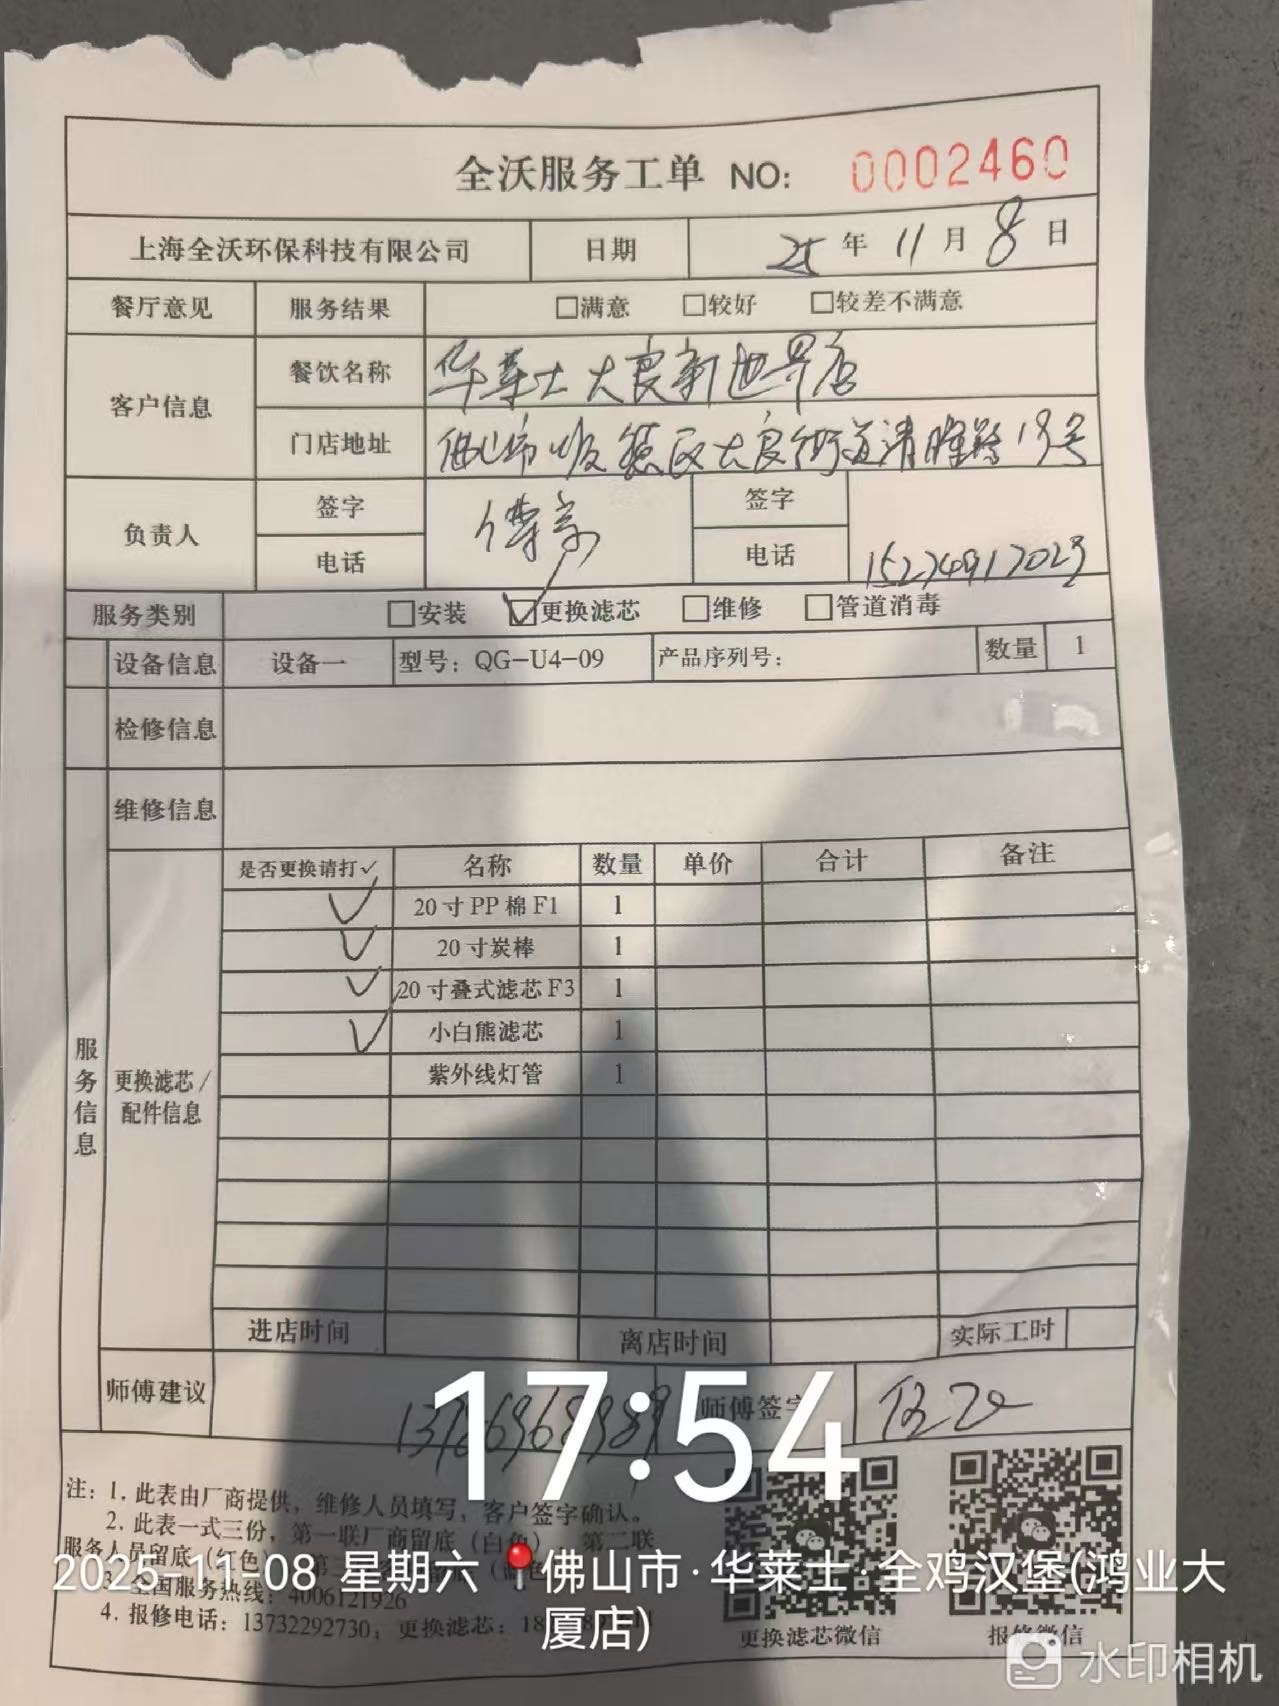 全沃服务工单 NO: 0002460
上海全沃环保科技有限公司 日期 25年11月8日
餐厅意见 服务结果 □满意 □较好 □较差不满意
客户信息 餐饮名称 华莱士大良新世界店
门店地址 佛山市顺德区大良街道清晖路19号
负责人 签字 签字
电话 电话 15274917023
服务类别 □安装 ☑更换滤芯 □维修 □管道消毒
设备信息 设备一 型号：QG-U4-09 产品序列号： 数量 1
检修信息
维修信息
是否更换请打✓ 名称 数量 单价 合计 备注
✓ 20寸PP棉F1 1
✓ 20寸炭棒 1
✓ 20寸叠式滤芯F3 1
✓ 小白熊滤芯 1
紫外线灯管 1
服务信息
更换滤芯/
配件信息
进店时间 离店时间 实际工时
师傅建议 师傅签字
17:54
注：1. 此表由厂商提供，维修人员填写，客户签字确认。
2. 此表一式三份，第一联厂商留底（白色），第二联
服务人员留底（红色）
3. 全国服务热线：4006121926
4. 报修电话：13732292730；更换滤芯：
更换滤芯微信 报修微信
2025-11-08 星期六 佛山市·华莱士·全鸡汉堡(鸿业大
厦店)
水印相机